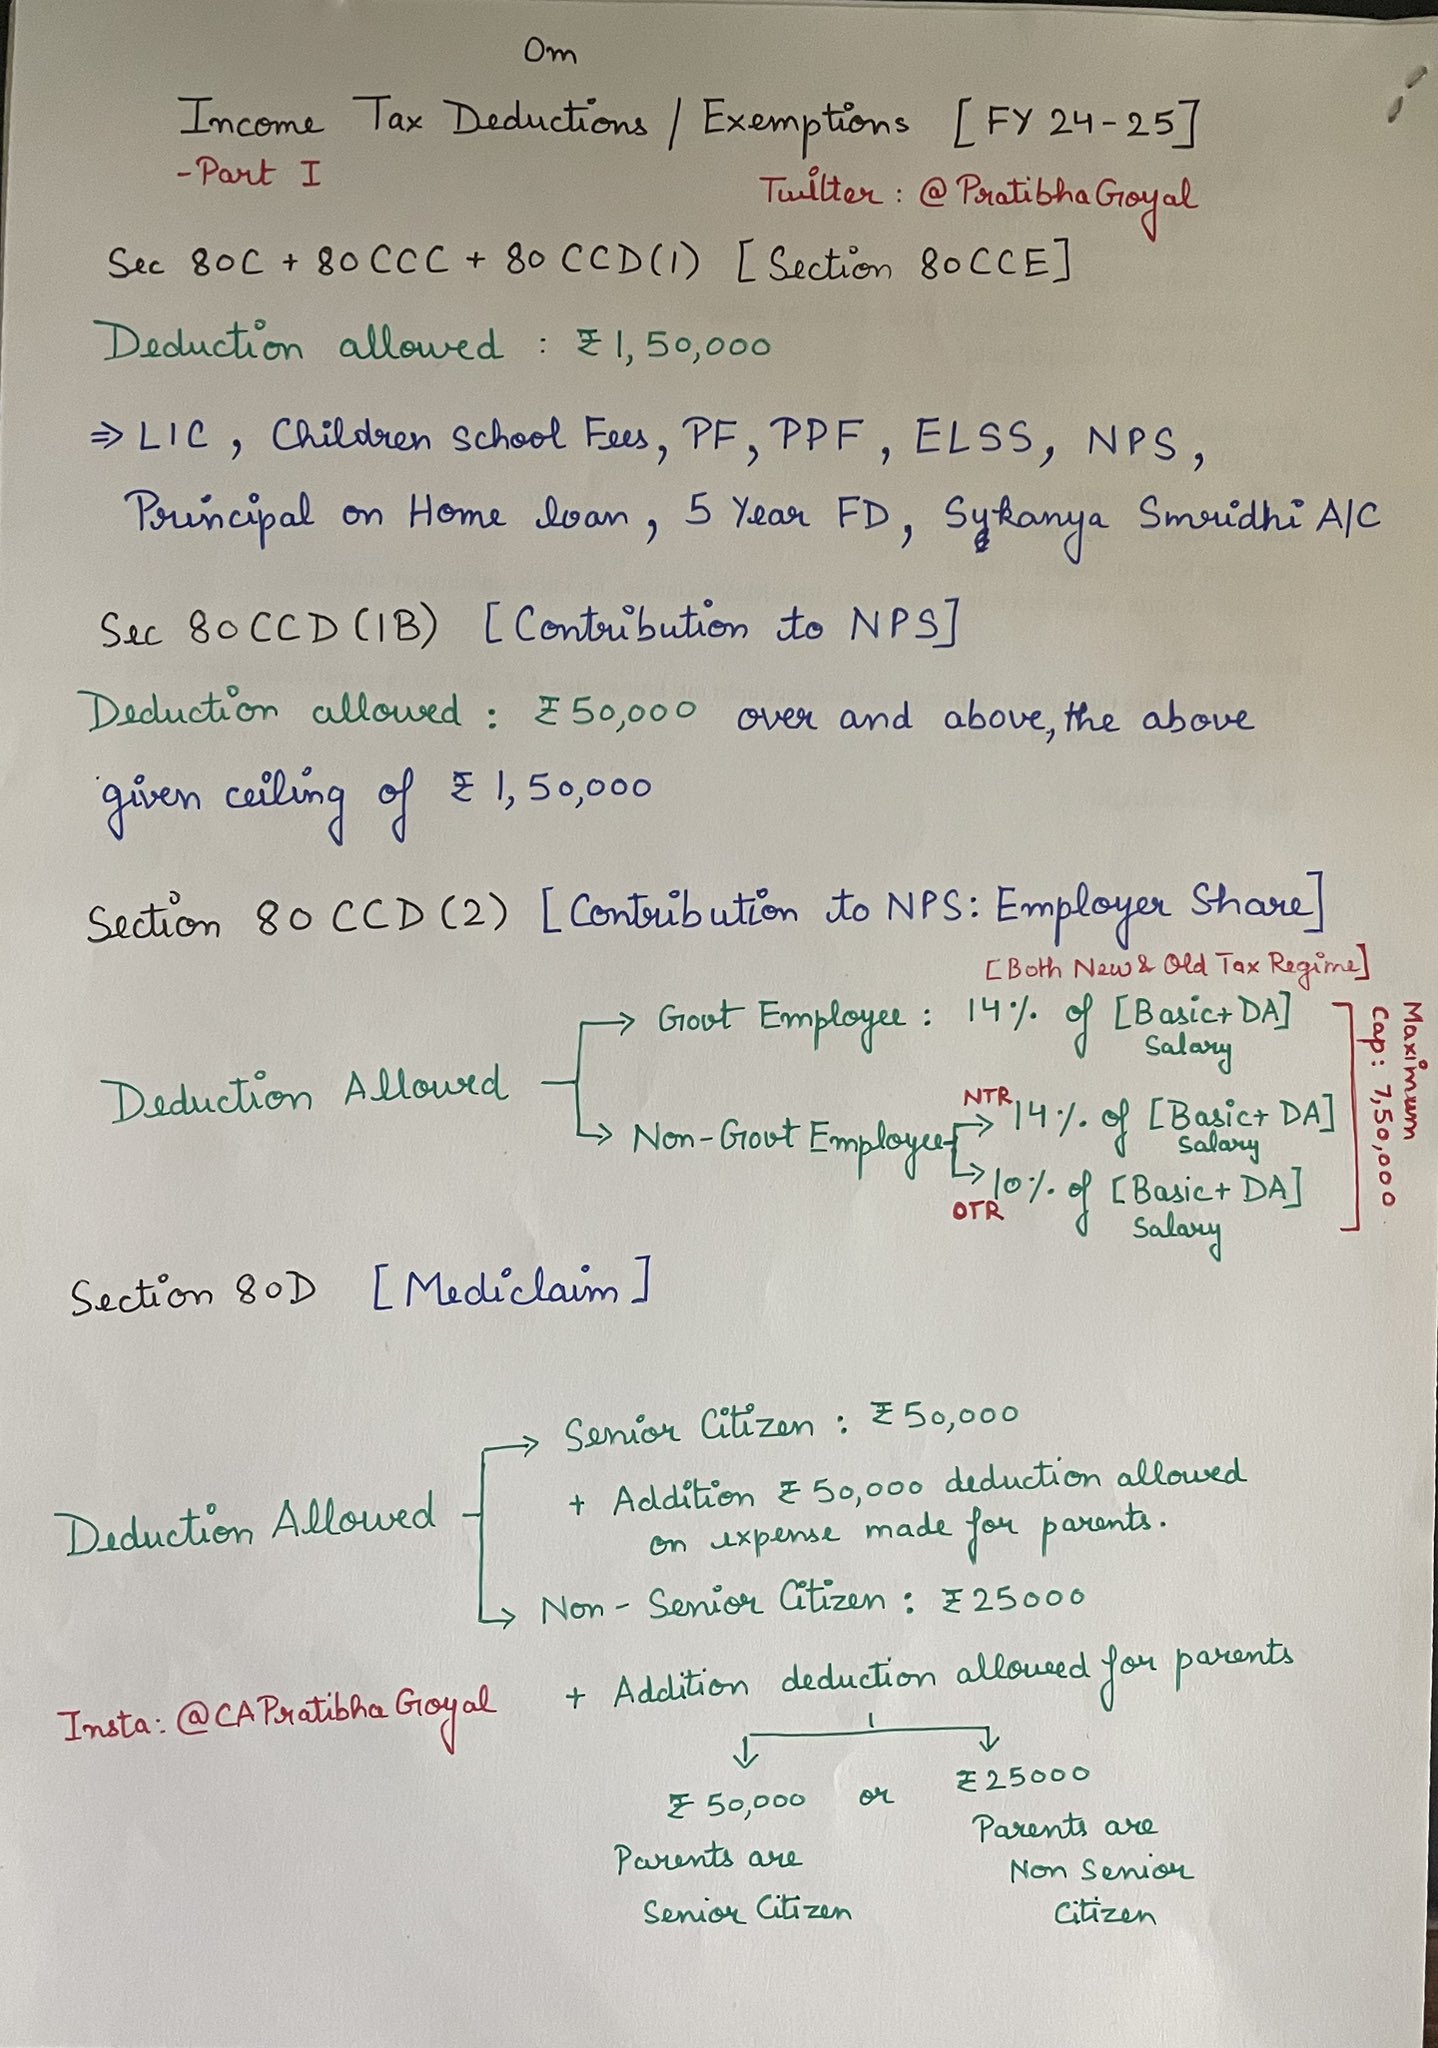 Om
Income Tax Deductions / Exemptions [FY 24-25]
-Part I
Twitter: @PratibhaGoyal
Sec 80C + 80CCC + 80CCD(1) [Section 80CCE]
Deduction allowed : ₹1,50,000
⇒ LIC, Children School Fees, PF, PPF, ELSS, NPS,
Principal on Home loan, 5 Year FD, Sykanya Smridhi A/C
Sec 80CCD(1B) [Contribution to NPS]
Deduction allowed : ₹50,000 over and above, the above
given ceiling of ₹1,50,000
Section 80CCD(2) [Contribution to NPS: Employer Share]
[Both New & Old Tax Regime]
Deduction Allowed
→ Govt Employee : 14% of [Basic+DA]
Salary
→ Non-Govt Employee
NTR → 14% of [Basic+DA]
Salary
OTR → 10% of [Basic+DA]
Salary
Maximum
Cap: 7,50,000
Section 80D [Mediclaim]
Deduction Allowed
→ Senior Citizen : ₹50,000
+ Addition ₹50,000 deduction allowed
on expense made for parents.
→ Non-Senior Citizen : ₹25000
+ Addition deduction allowed for parents
₹50,000 or ₹25000
Parents are
Senior Citizen
Parents are
Non Senior
Citizen
Insta: @CAPratibhaGoyal